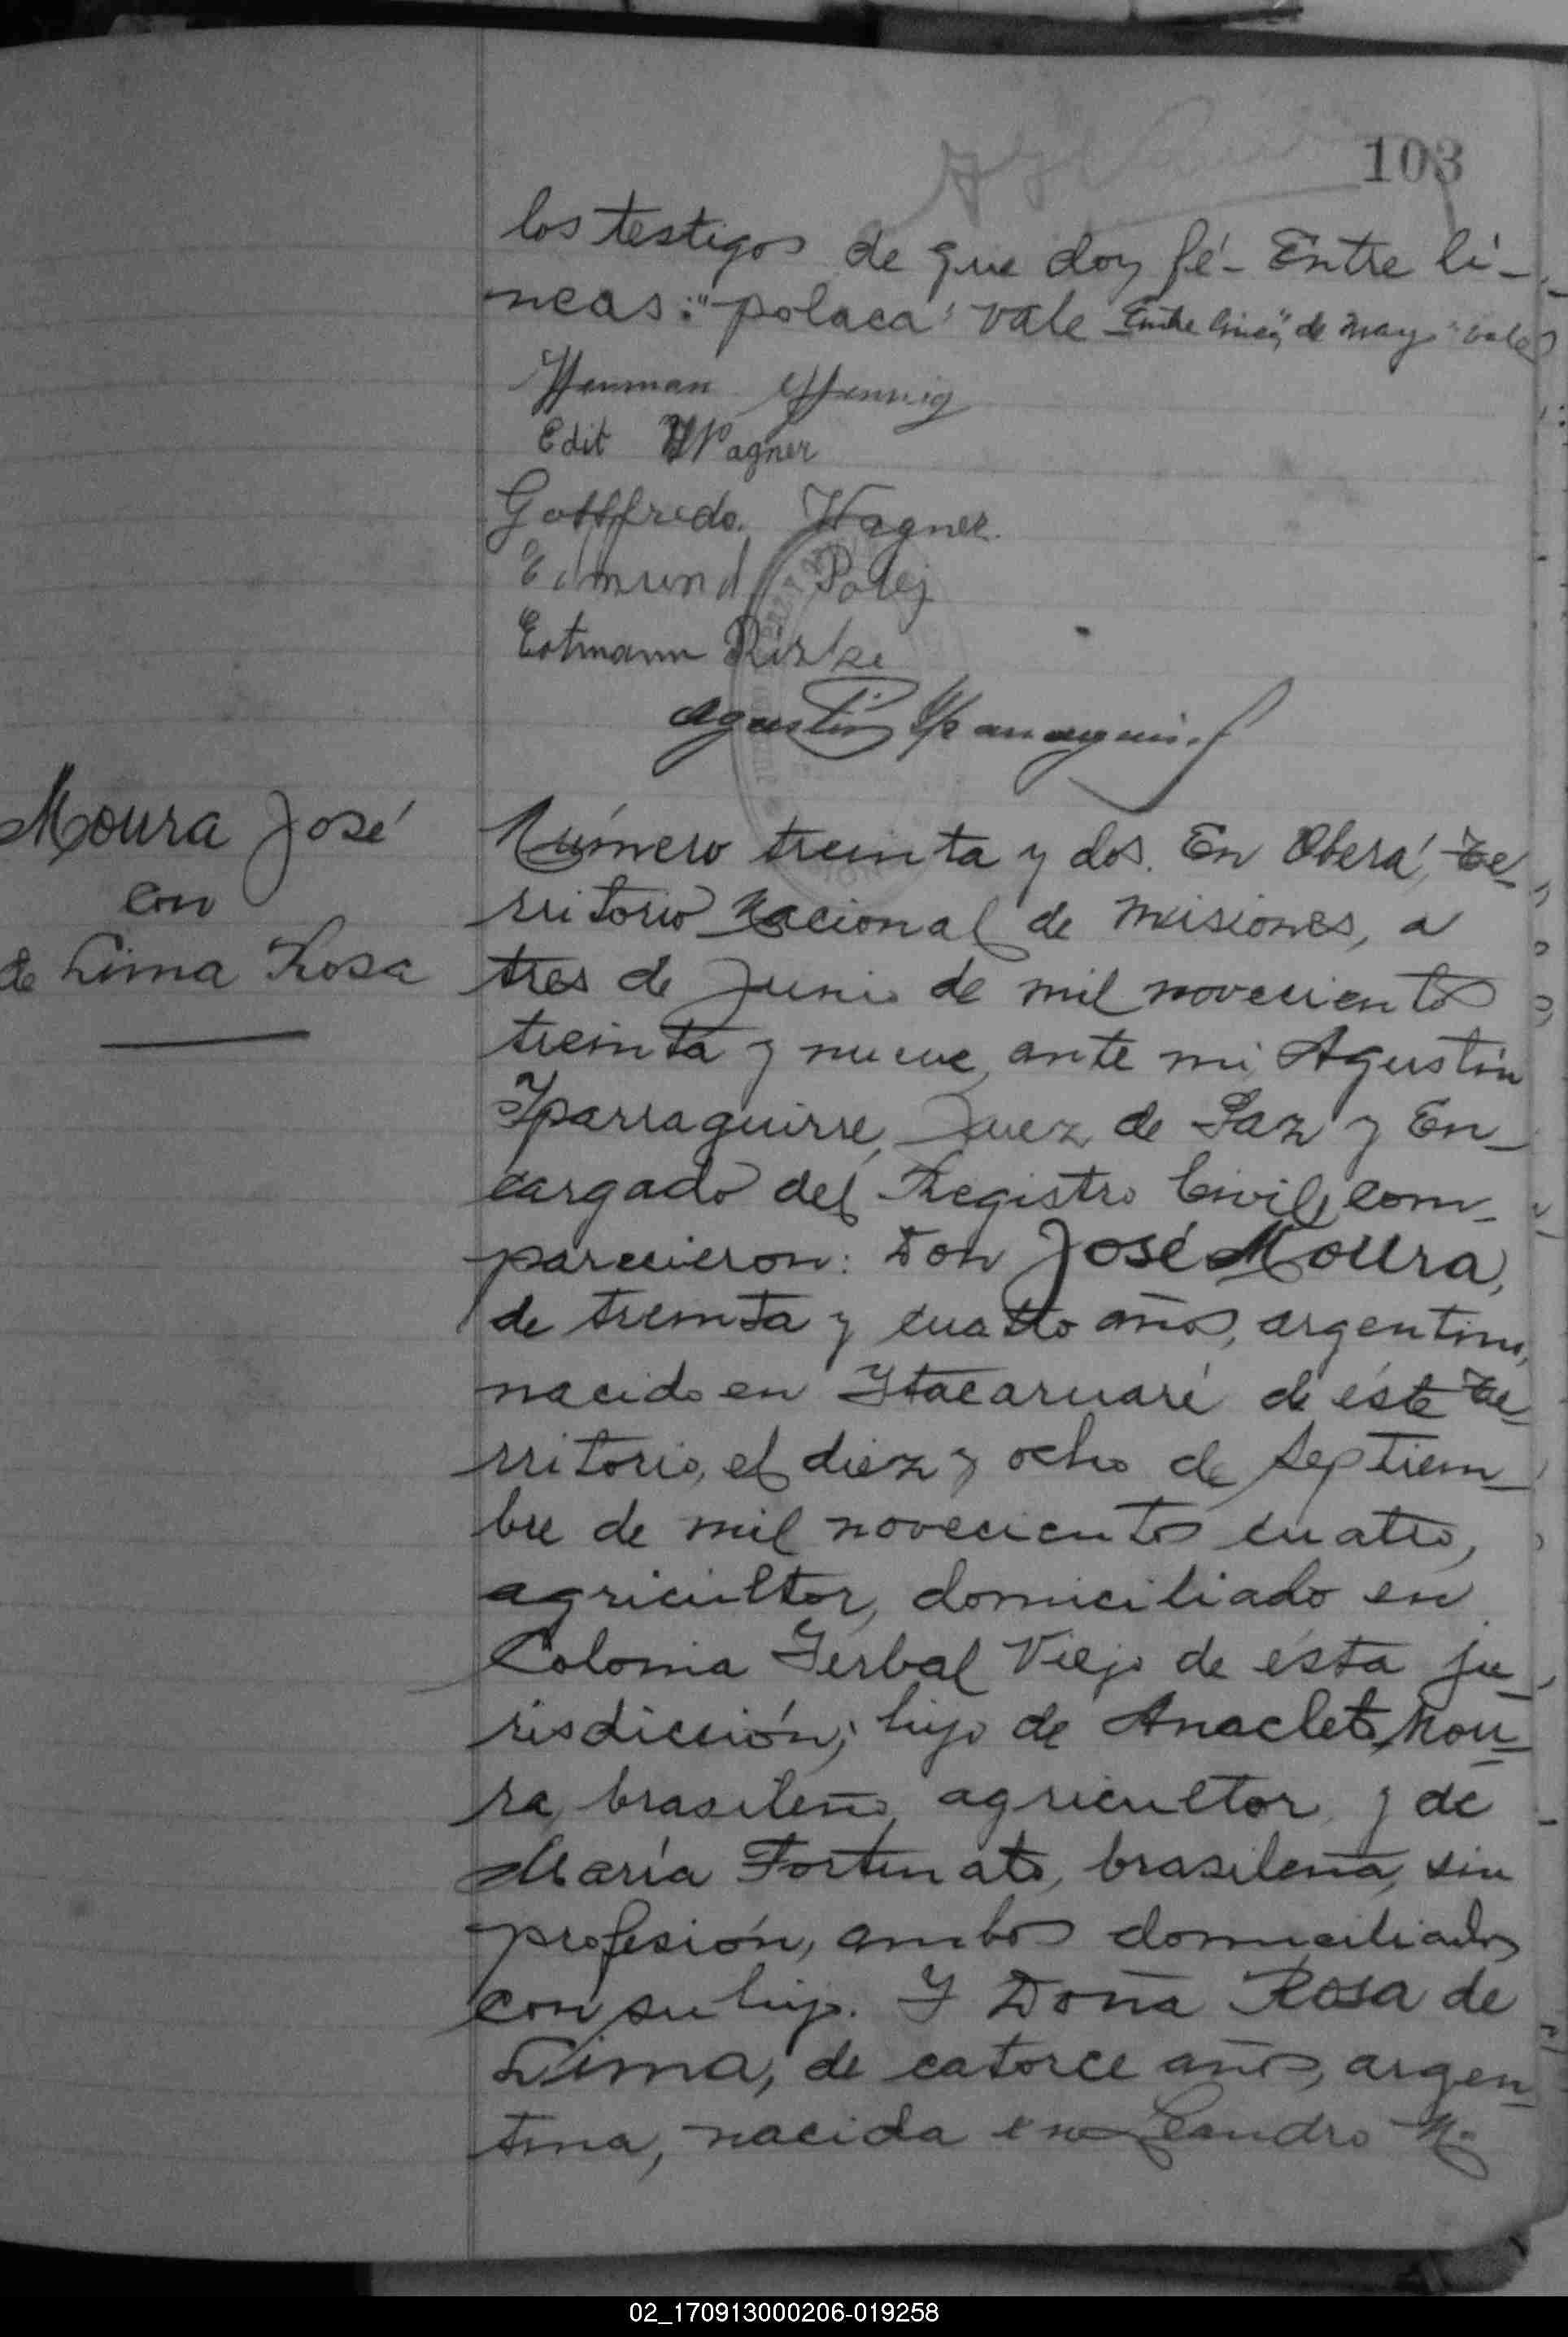 103
los testigos de que doy fé - Entre li-
neas: "polaca" vale Entre lineas, "de Mayo" vale
Herman Pfennig
Edit Wagner
Gottfredo. Wagner.
Edmund
Agustín Yparraguirre
Moura José
con
de Lima Rosa
Número treinta y dos. En Oberá, Te-
rritorio Nacional de Misiones, a
tres de Junio de mil novecientos
treinta y nueve, ante mi, Agustín
Yparraguirre, Juez de Paz y En-
cargado del Registro Civil, com-
parecieron: Don José Moura,
de treinta y cuatro años, argentino,
nacido en Itacaruaré de éste Te-
rritorio, el diez y ocho de Septiem-
bre de mil novecientos cuatro,
agricultor, domiciliado en
Colonia Yerbal Viejo de ésta ju-
risdicción; hijo de Anacleto Mou-
ra, brasileño, agricultor, y de
María Fortunato, brasileña, sin
profesión, ambos domiciliados
con su hijo. Y Doña Rosa de
Lima, de catorce años, argen-
tina, nacida en Leandro N.
02_170913000206-019258